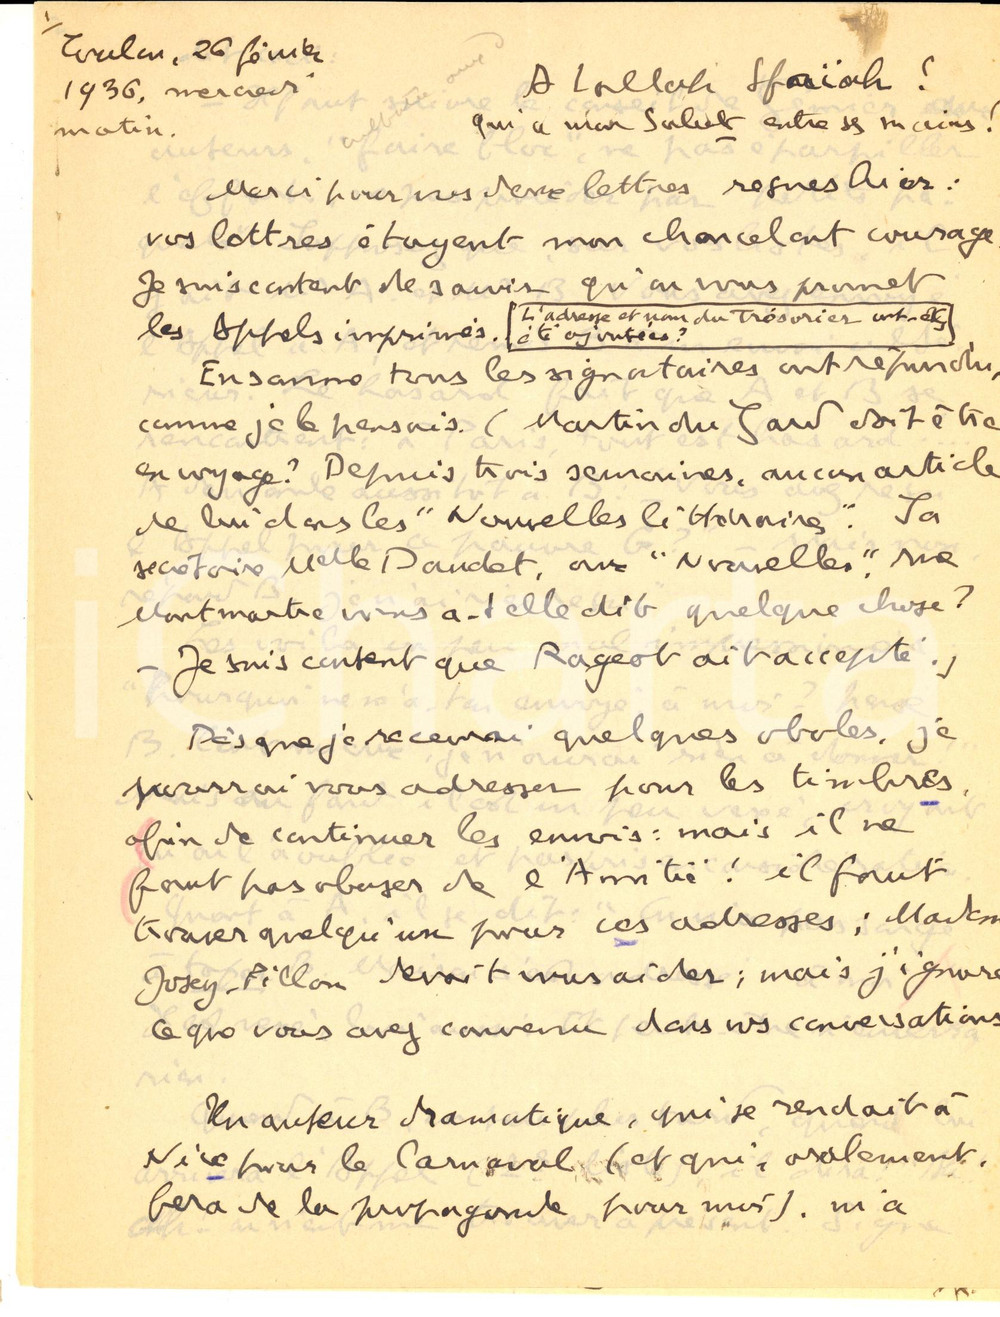 Toulon, 26 février
1936, mercredi
matin.
A Lallah Sfaïah !
qui a mon Salut entre ses mains !
Merci pour vos deux lettres reçues hier :
vos lettres étayent mon chancelant courage.
Je suis content de savoir qu'on vous promet
les Appels imprimés. [L'adresse et nom du Trésorier ont-ils
été ajoutés ?]
En somme tous les signataires ont répondu,
comme je le pensais. (Martin du Gard doit être
en voyage ? Depuis trois semaines, aucun article
de lui dans les "Nouvelles littéraires". Sa
secrétaire Melle Daudet, aux "Nouvelles", rue
Montmartre vous a-t-elle dit quelque chose ?
- Je suis content que Rageot ait accepté.)
Dès que je recevrai quelques oboles, je
pourrai vous adresser pour les timbres,
afin de continuer les envois : mais il ne
faut pas abuser de l'Amitié ! il faut
trouver quelqu'un pour ces adresses ; Madame
Josey-Pillon devait vous aider ; mais j'ignore
ce que vous avez convenu dans vos conversations
Un auteur dramatique, qui se rendait à
Nice pour le Carnaval (et qui, oralement,
fera de la propagande pour moi), m'a